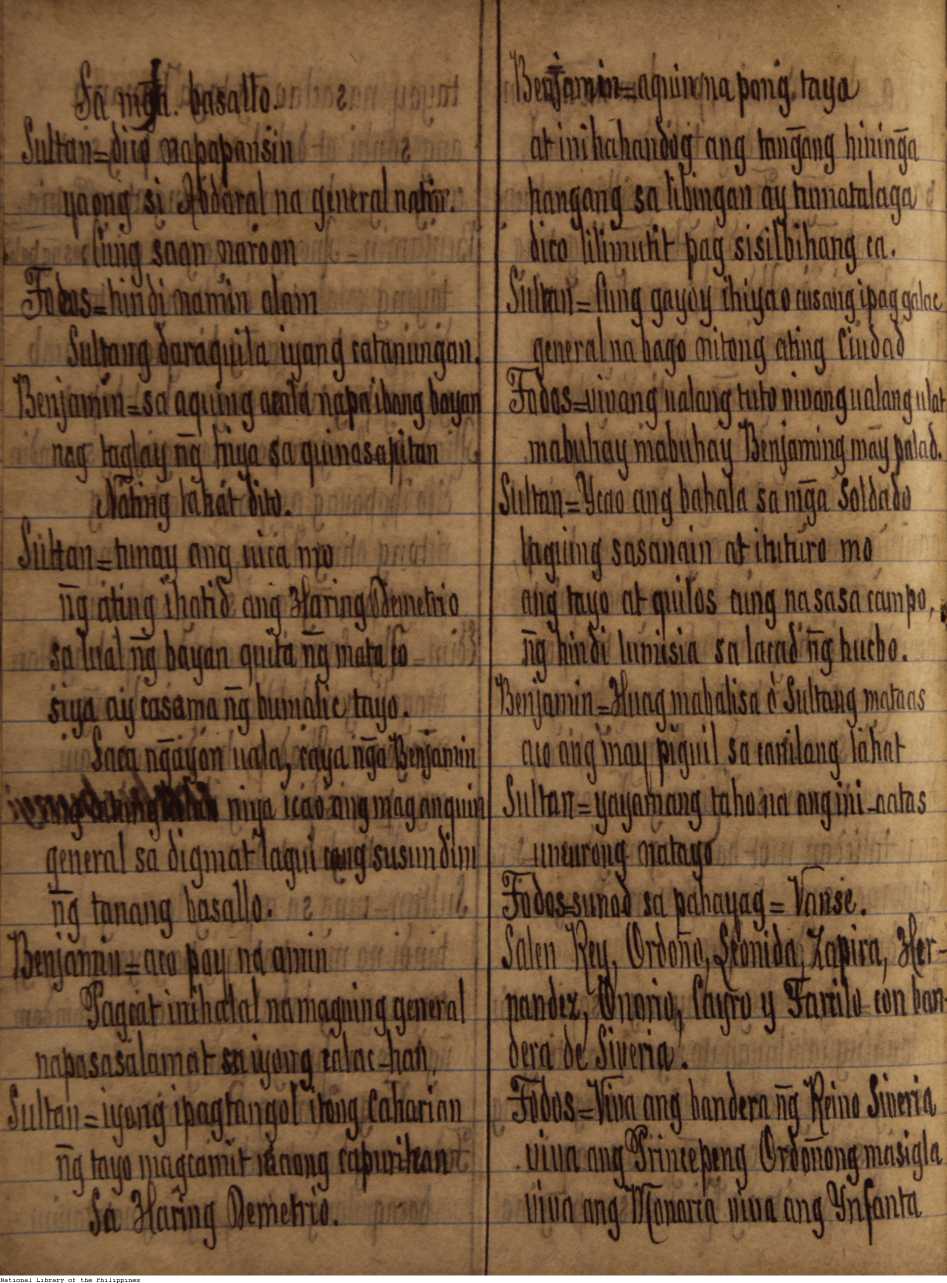 Sa mga basallo.
Sultan=dico napapansin
yaong si Abdaral na general natin.
Cung saan naroon
Todos=hindi namin alam
Sultang daraquila iyang catanungan.
Benjamin=sa aquing acala napa ibang bayan
nag taglay ng̃ hiya sa quinasapitan
Nating lahat dito.
Sultan=tunay ang uica mo
ng̃ ating ihatid ang Haring Demetrio
sa lual ng̃ bayan quita ng̃ mata co
siya ay casama ng̃ bumalic tayo.
Saca ng̃ayon uala, caya ng̃a Benjamin
niya icao ang mag anquin
general sa digmat lagui cang susundin
ng̃ tanang basallo.
Benjamin=aco poy na amin
Pagcat inihalal na maguing general
napasasalamat sa iyong calac-han,
Sultan=iyong ipagtangol itong Caharian
ng̃ tayo magcamit niaong capurihan
Sa Haring Demetrio.
Benjamin=aquin na pong taya
at inihahandog ang tang̃ang hining̃a
hangang sa libingan ay tumatalaga
dico lilimutit pag sisilbihang ca.
Sultan=Cung gayoy ihiyao cusang ipag galac
general na bago nitong ating Ciudad
Todos=vivang ualang tuto vivang ualang ulat
mabuhay mabuhay Benjaming may palad.
Sultan=Ycao ang bahala sa mg̃a Soldado
laguing sasanain at ituturo mo
ang tayo at quilos cung nasasa campo,
ng̃ hindi lumisia sa lacad ng̃ hucbo.
Benjamin=Huag mabalisa ó Sultang mataas
aco ang may piguil sa canilang lahat
Sultan=yayamang taho na ang ini-aatas
umurong natayo
Todos=sunod sa pahayag=Vanse.
Salen Rey, Ordoño, Leonida, Zapira, Her-
nandez, Onorio, Cayro y Tarcilo con ban-
dera de Siveria.
Todos=Viva ang bandera ng̃ Reino Siveria
viva ang Principeng Ordoñong masigla
viva ang Monaria viva ang Ynfanta
National Library of the Philippines